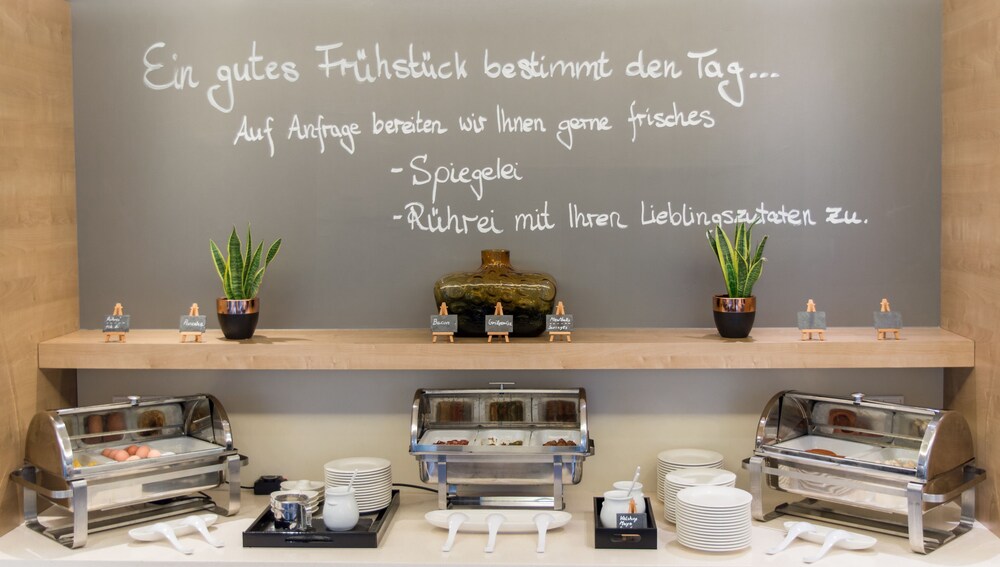 Ein gutes Frühstück bestimmt den Tag...
Auf Anfrage bereiten wir Ihnen gerne frisches
- Spiegelei
- Rührei mit Ihren Lieblingszutaten zu.
Bacon